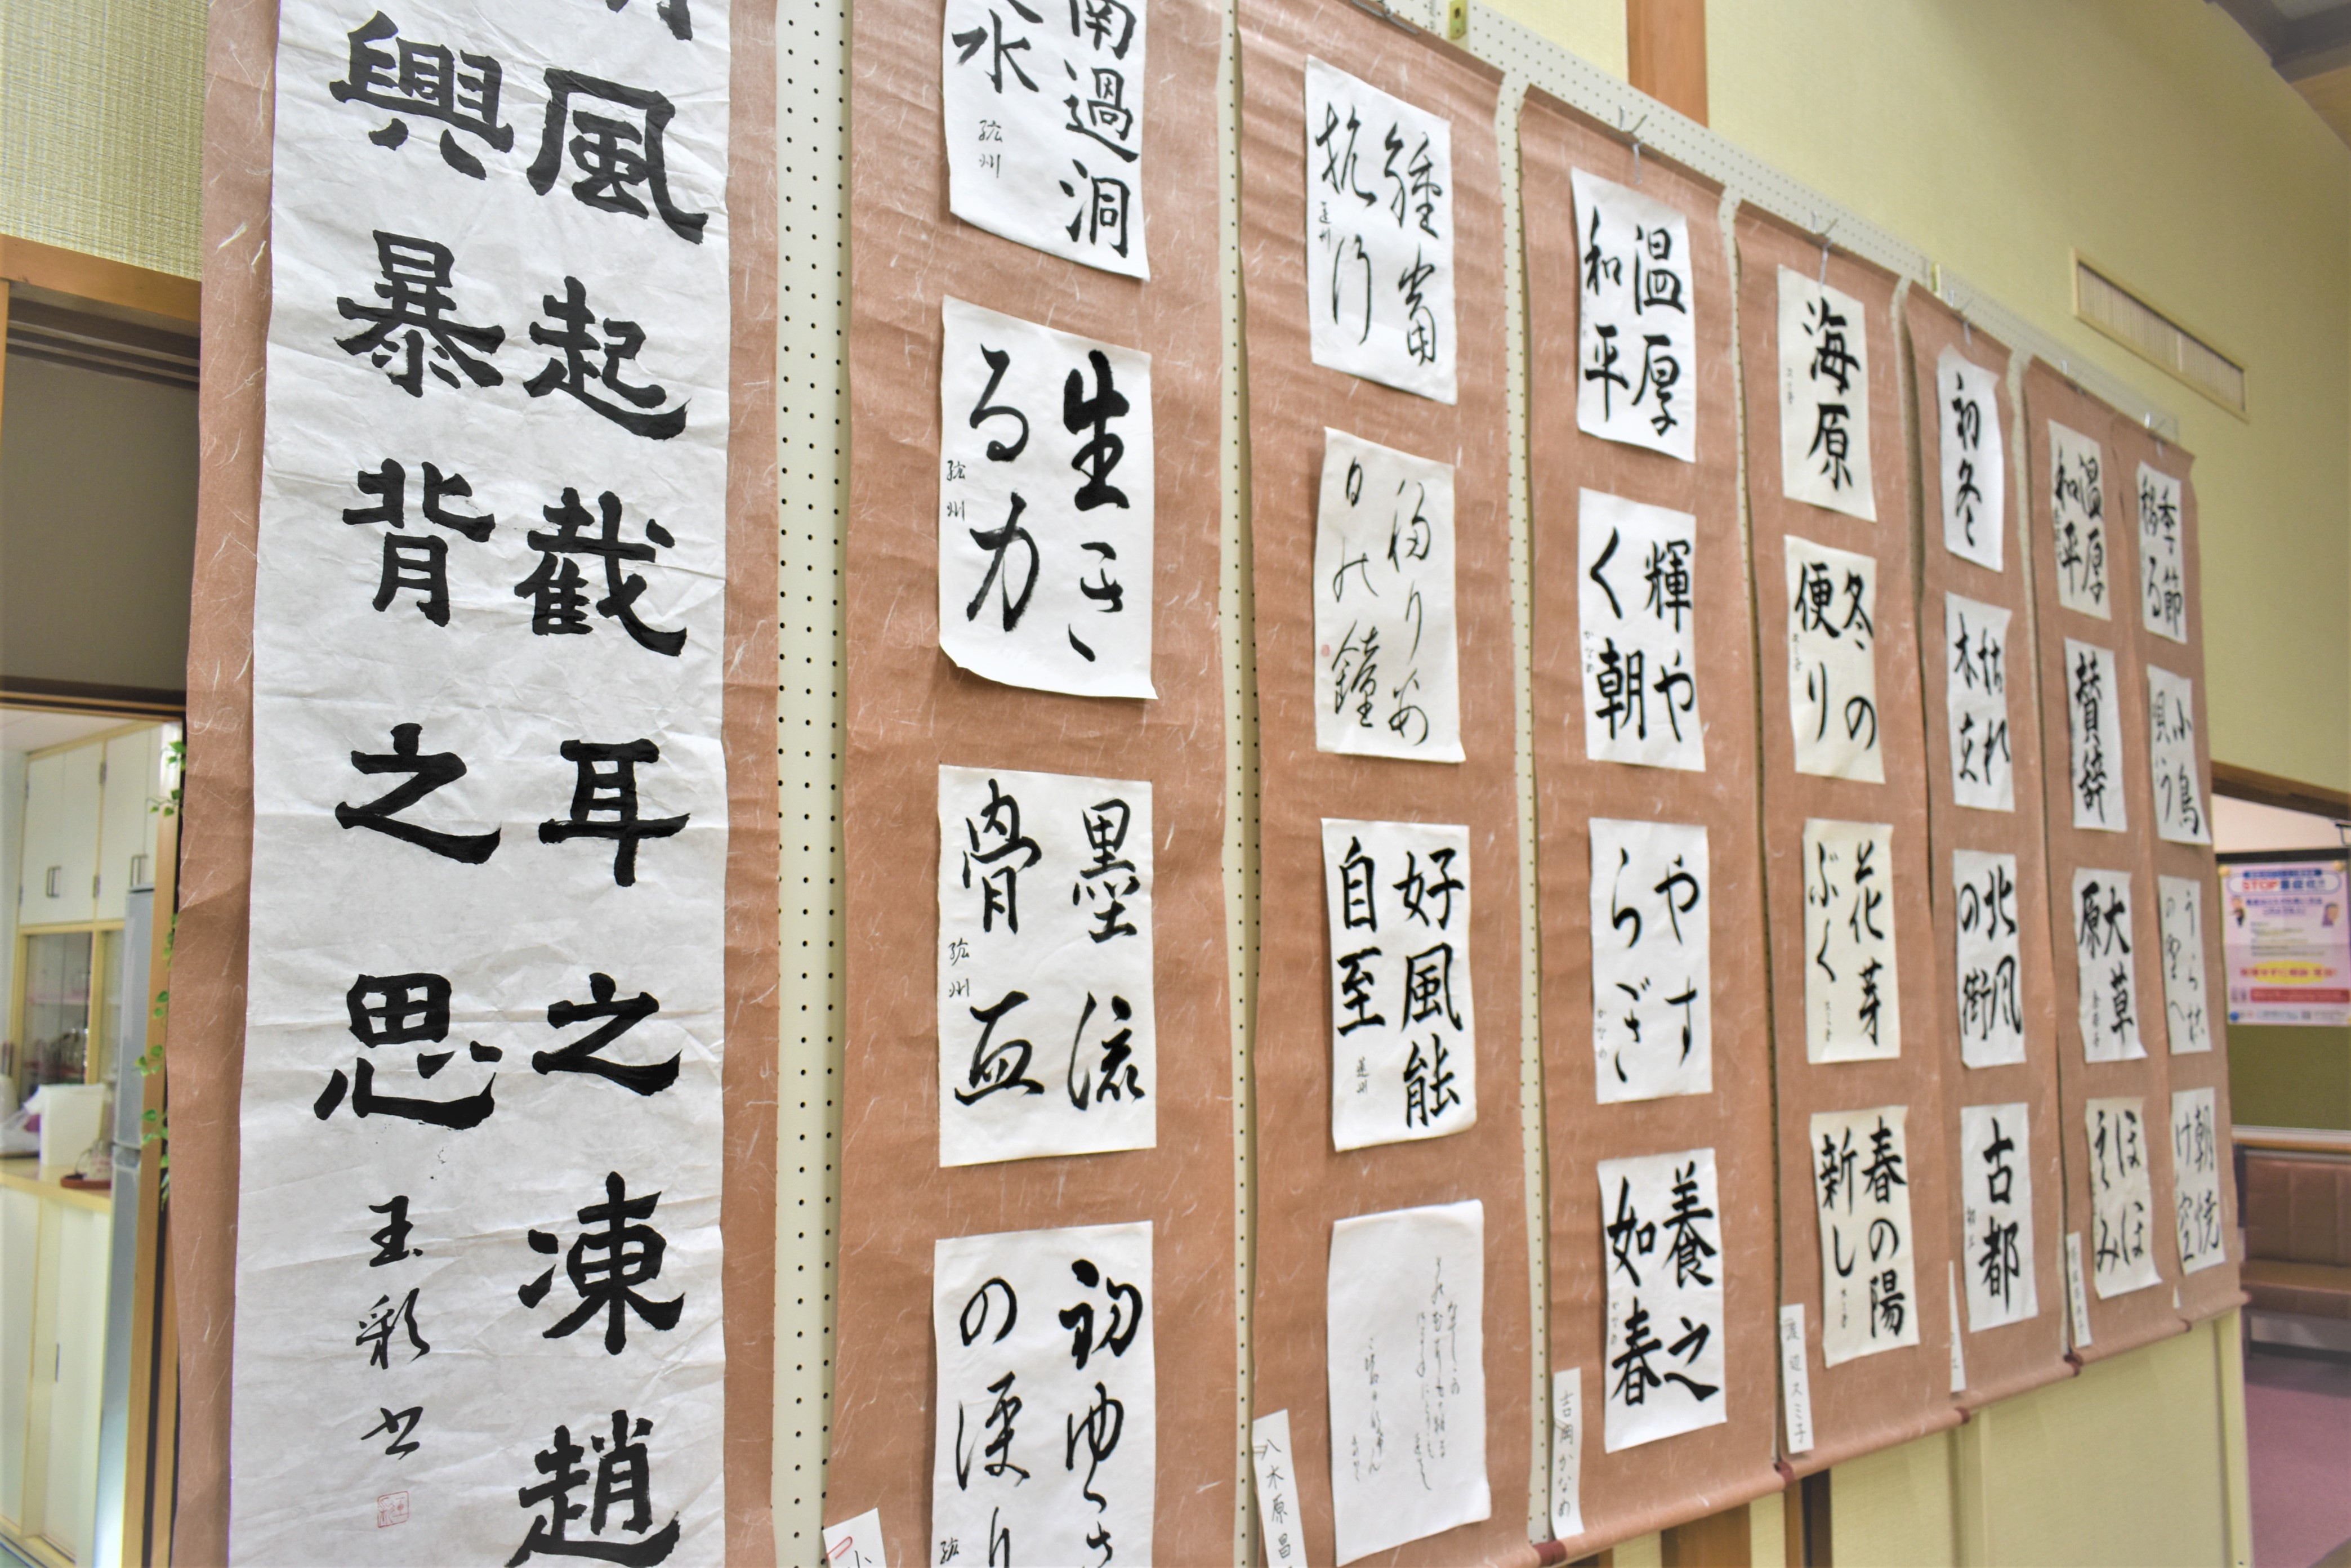 風起截耳之凍趙
興暴背之思
玉彩書
南過洞
水
紘州
生き
る力
紘州
墨流
骨血
紘州
初ゆき
の便り
紘
抗行
蓬州
日の鐘
好風能
自至
蓬州
八木原昌
温厚
和平
輝や
く朝
かなめ
やす
らぎ
かなめ
養之
如春
かなめ
吉岡かなめ
海原
冬の
便り
花芽
ぶく
春の陽
新し
渡辺スミ子
初冬
枯れ
木立
北風
の街
古都
温厚
和平
賛辞
大草
原
ほほ
えみ
季節
移る
小鳥
唄う
朝焼
け空
STOP